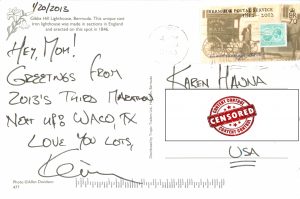 4/20/2013
Gibbs Hill Lighthouse, Bermuda. This unique cast
iron lighthouse was made in sections in England
and erected on this spot in 1846.
HEY, MOM!
GREETINGS FROM
2013'S THIRD MARATHON
NEXT UP? WACO, TX
LOVE YOU LOTS,
Photo ©Allan Davidson
477
BERMUDA POSTAL SERVICE
2002
KAREN HANNA
CONTENT CONTROL
CENSORED
CONTENT CONTROL
USA